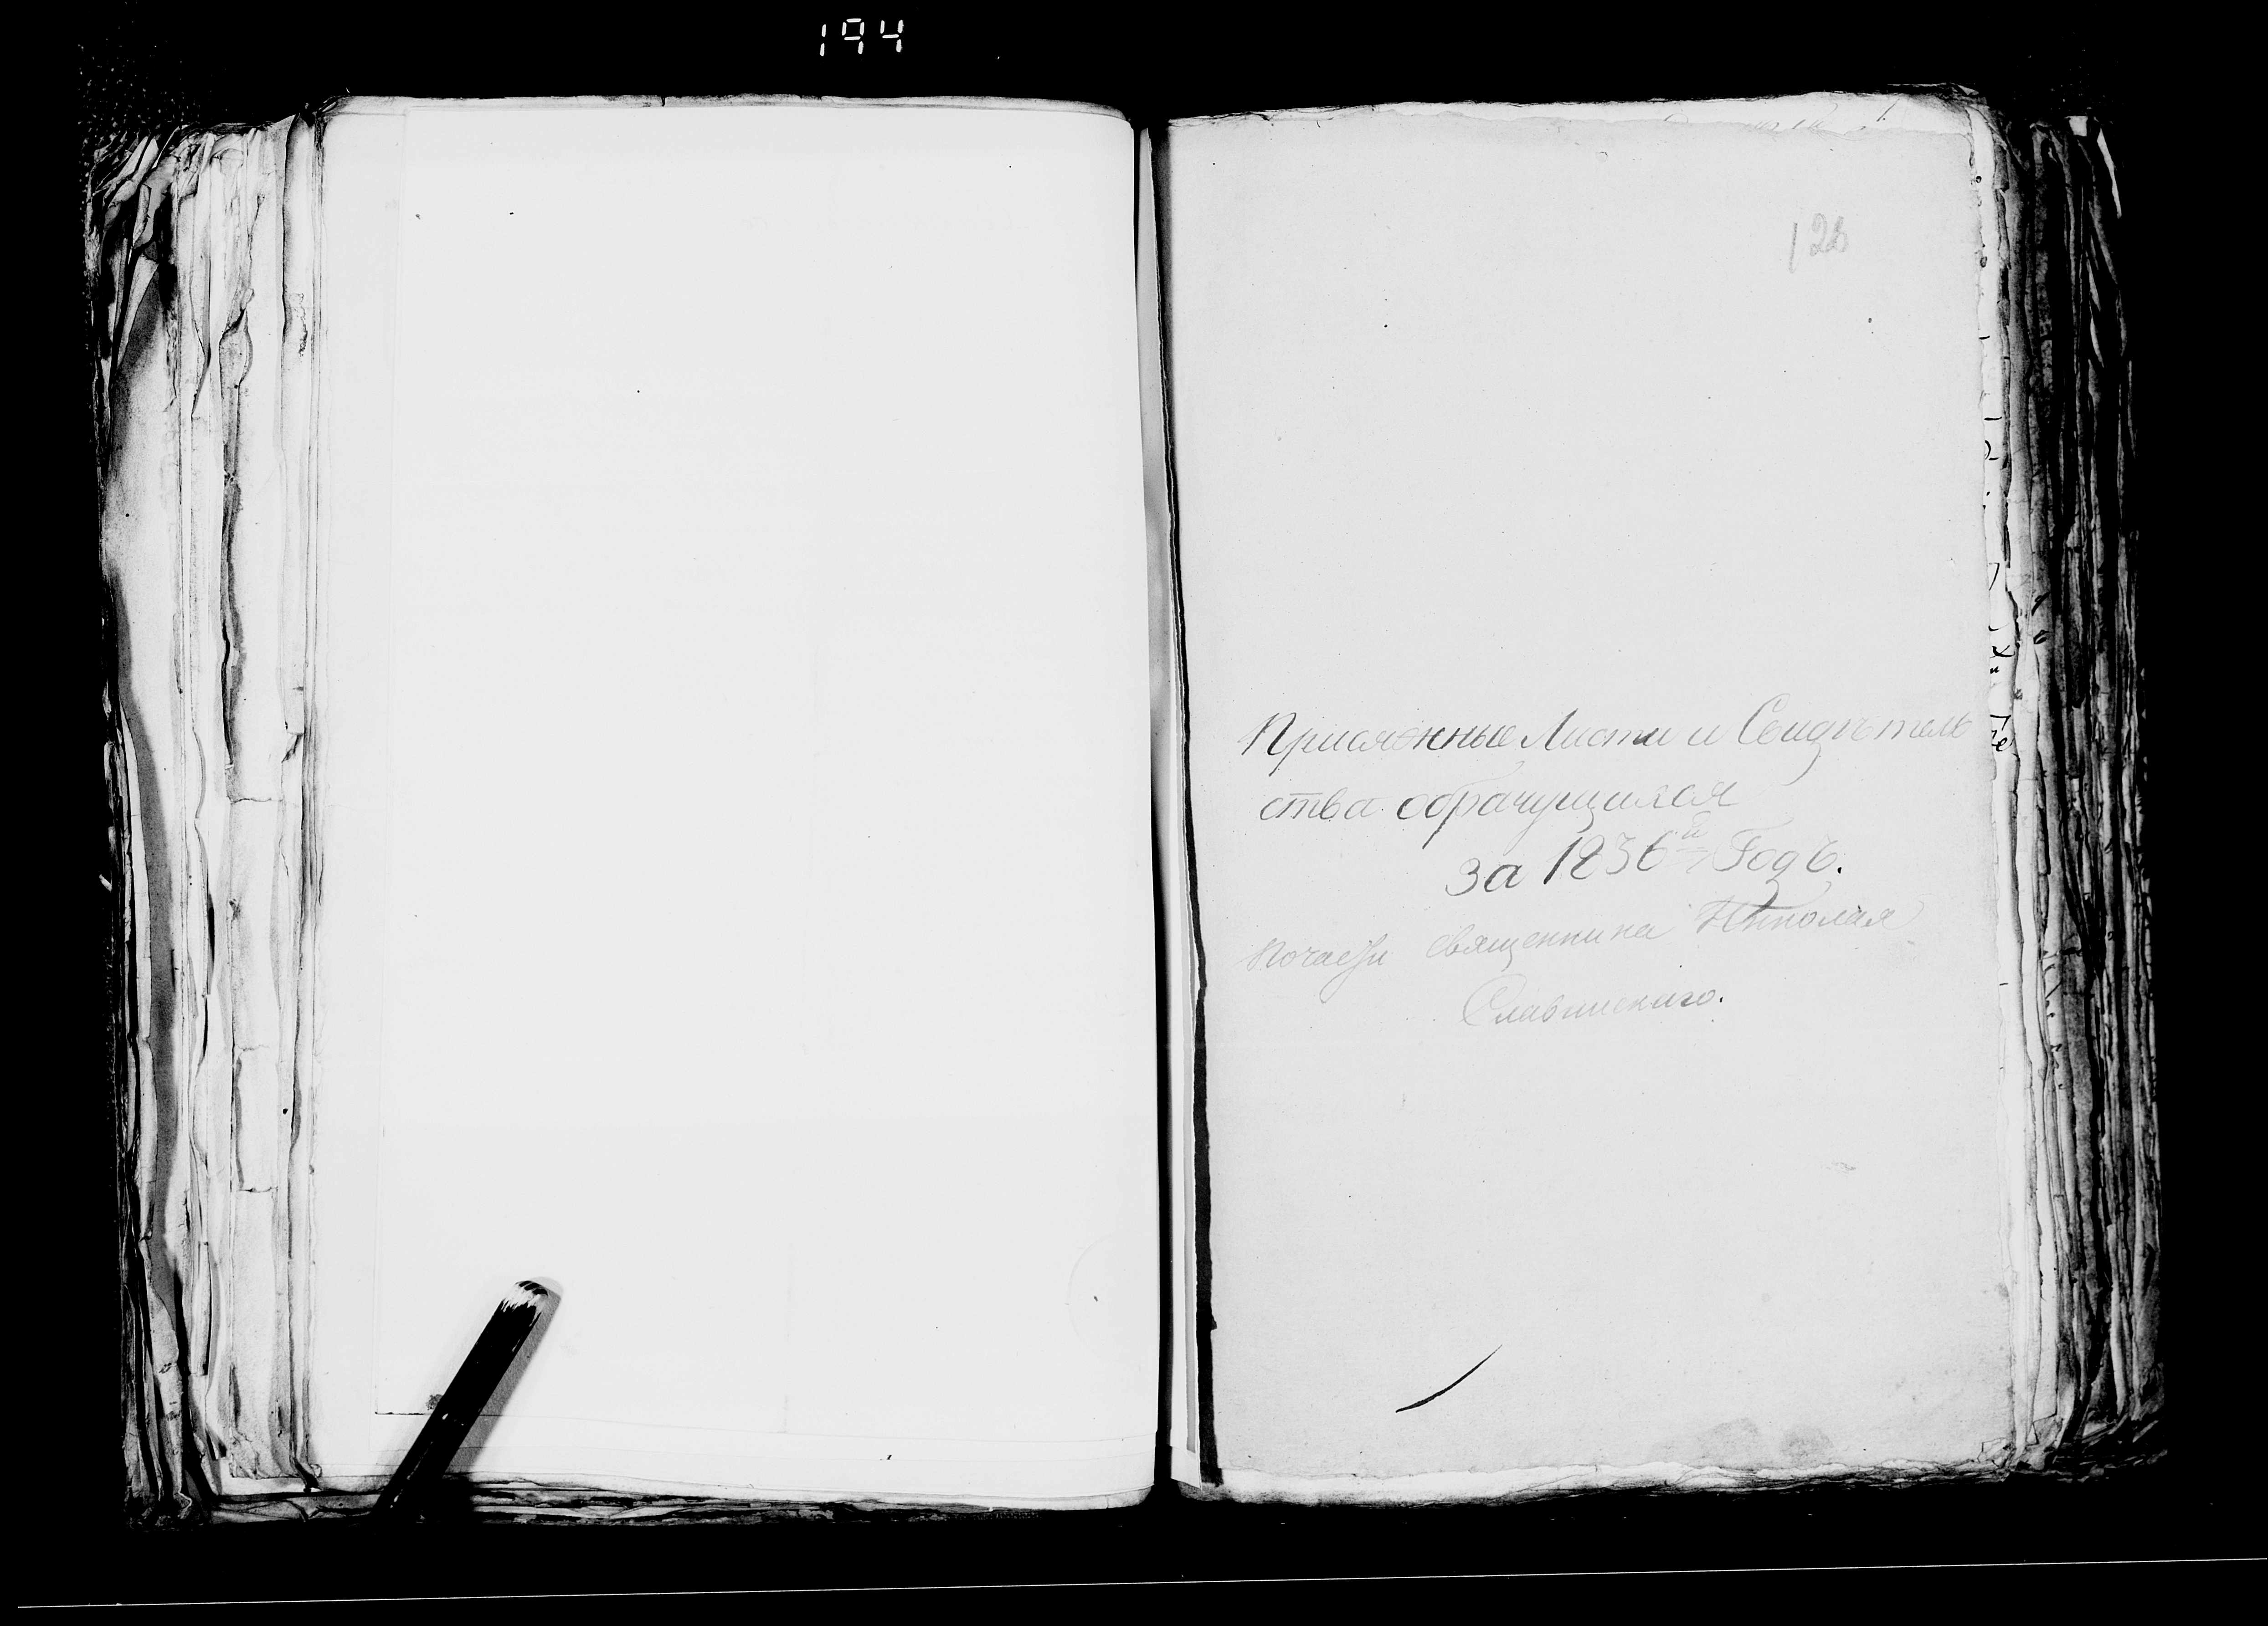 194
128
Присяжные Листи и Свидѣтель
ства обрачущихся
за 1836й Годъ.
По части священника Николая
Славинскаго.